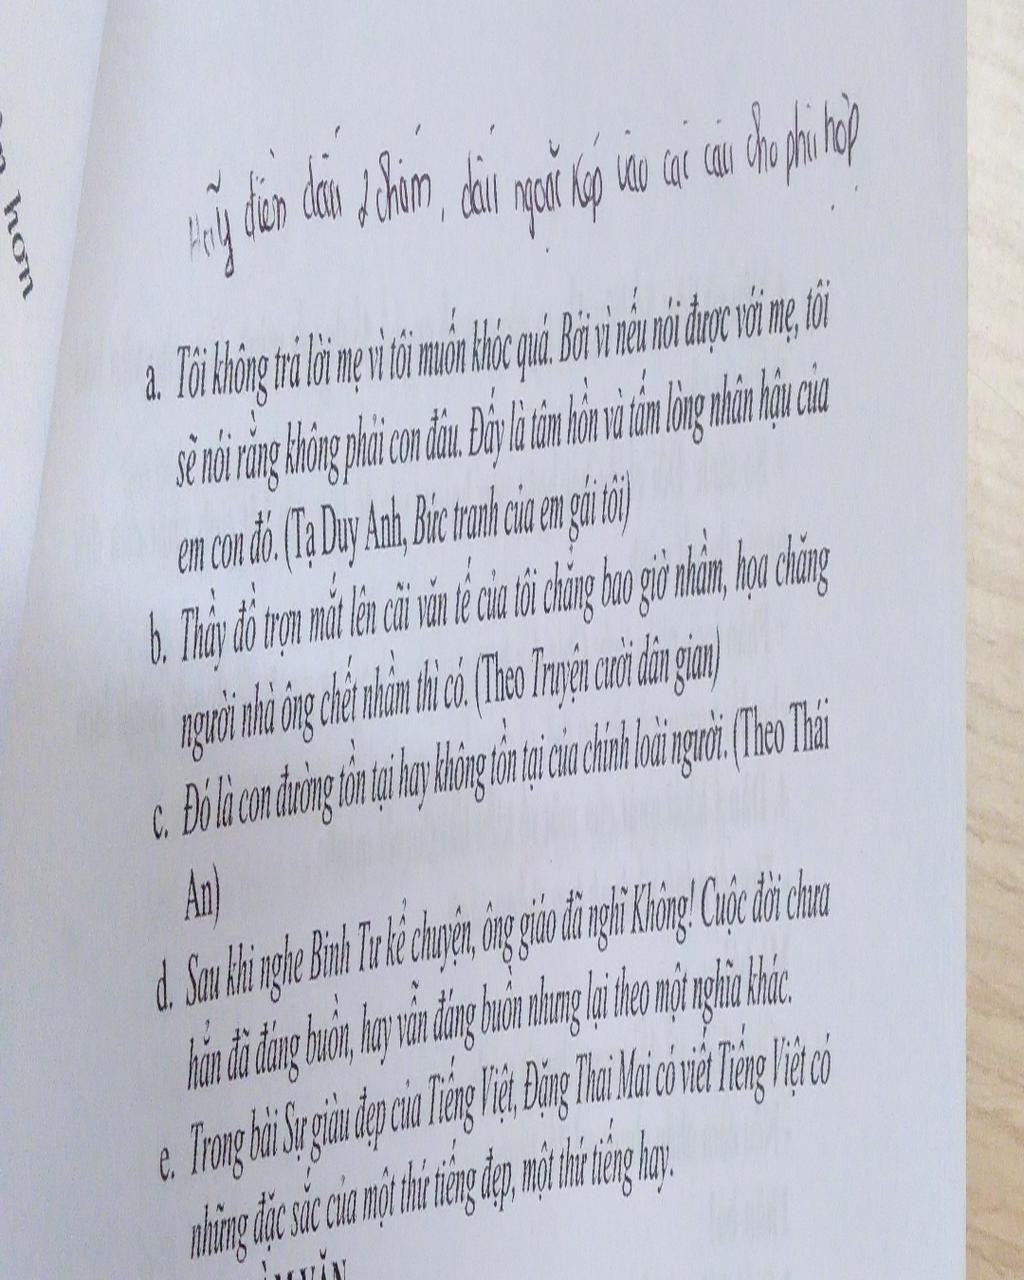 hơn
Hãy điền dấu 2 chấm, dấu ngoặc kép vào các câu cho phù hợp.
a. Tôi không trả lời mẹ vì tôi muốn khóc quá. Bởi vì nếu nói được với mẹ, tôi
sẽ nói rằng không phải con đâu. Đấy là tâm hồn và tấm lòng nhân hậu của
em con đó. (Tạ Duy Anh, Bức tranh của em gái tôi)
b. Thầy đồ trợn mắt lên cãi văn tế của tôi chẳng bao giờ nhầm, họa chăng
người nhà ông chết nhầm thì có. (Theo Truyện cười dân gian)
c. Đó là con đường tồn tại hay không tồn tại của chính loài người. (Theo Thái
An)
d. Sau khi nghe Binh Tư kể chuyện, ông giáo đã nghĩ Không! Cuộc đời chưa
hẳn đã đáng buồn, hay vẫn đáng buồn nhưng lại theo một nghĩa khác.
e. Trong bài Sự giàu đẹp của Tiếng Việt, Đặng Thai Mai có viết Tiếng Việt có
những đặc sắc của một thứ tiếng đẹp, một thứ tiếng hay.
VĂN